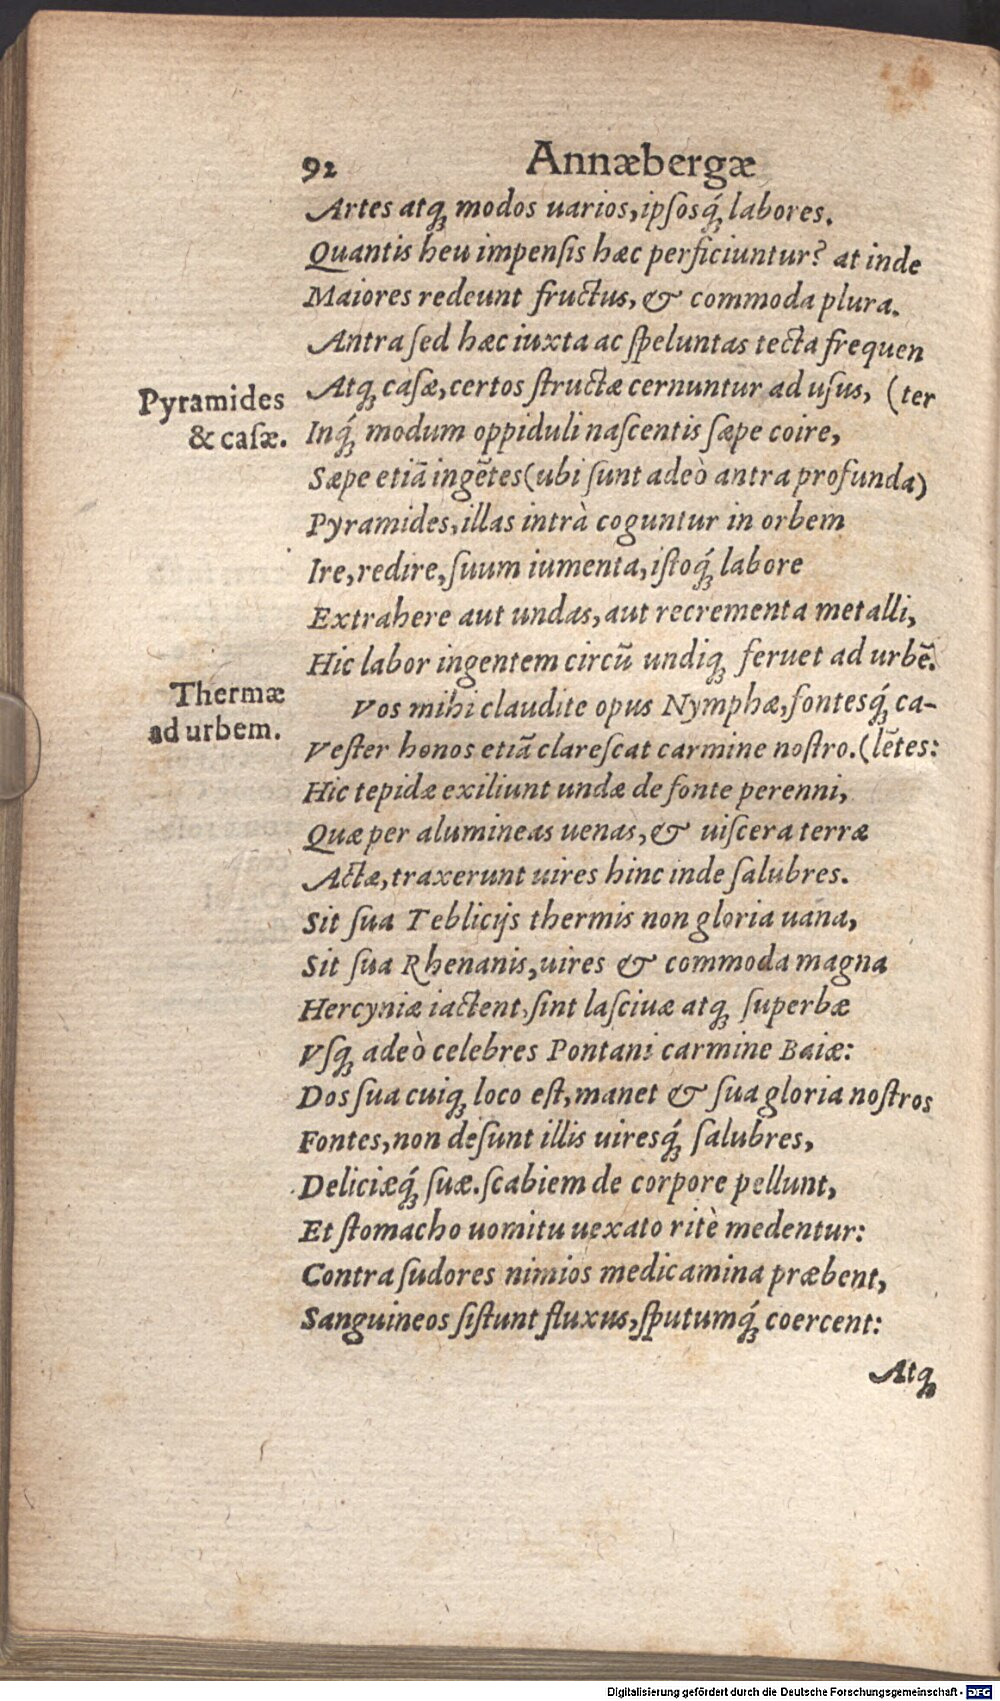 92 Annæbergæ
Artes atq; modos uarios, ipſosq́; labores.
Quantis heu impenſis hæc perficiuntur? at inde
Maiores redeunt fructus, & commoda plura.
Antra ſed hæc iuxta ac ſpeluntas tecta frequen
Pyramides
& caſæ.
Atq; caſæ, certos ſtructæ cernuntur ad uſus, (ter
Inq́; modum oppiduli naſcentis ſæpe coire,
Sæpe etiã ingẽtes (ubi ſunt adeò antra profunda)
Pyramides, illas intrà coguntur in orbem
Ire, redire, ſuum iumenta, iſtoq́; labore
Extrahere aut undas, aut recrementa metalli,
Hic labor ingentem circũ undiq; feruet ad urbẽ.
Thermæ
ad urbem.
Vos mihi claudite opus Nymphæ, fontesq́; ca-
Veſter honos etiã clareſcat carmine noſtro. (lẽtes:
Hic tepidæ exiliunt undæ de fonte perenni,
Quæ per alumineas uenas, & uiſcera terræ
Actæ, traxerunt uires hinc inde ſalubres.
Sit ſua Teblicijs thermis non gloria uana,
Sit ſua Rhenanis, uires & commoda magna
Hercyniæ iactent, ſint laſciuæ atq; ſuperbæ
Vſq; adeò celebres Pontani carmine Baiæ:
Dos ſua cuiq; loco eſt, manet & ſua gloria noſtros
Fontes, non deſunt illis uiresq́; ſalubres,
Deliciæq́; ſuæ. ſcabiem de corpore pellunt,
Et ſtomacho uomitu uexato ritè medentur:
Contra ſudores nimios medicamina præbent,
Sanguineos ſiſtunt fluxus, ſputumq́; coercent:
Atq;
Digitalisierung gefördert durch die Deutsche Forschungsgemeinschaft - DFG